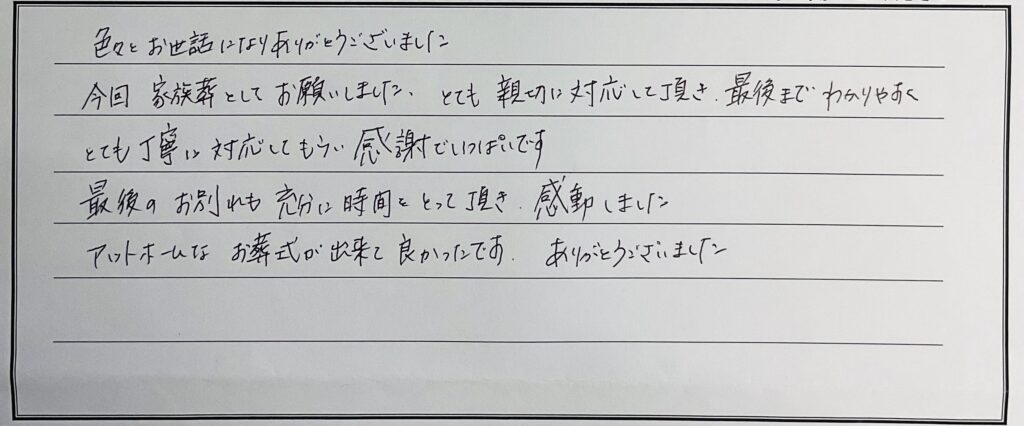 色々とお世話になりありがとうございました
今回 家族葬として お願いしました、とても 親切に対応して頂き、最後まで わかりやすく
とても丁寧に 対応してもらい 感謝でいっぱいです
最後の お別れも 充分に時間を とって頂き、感動しました
アットホームな お葬式が出来て 良かったです。 ありがとうございました